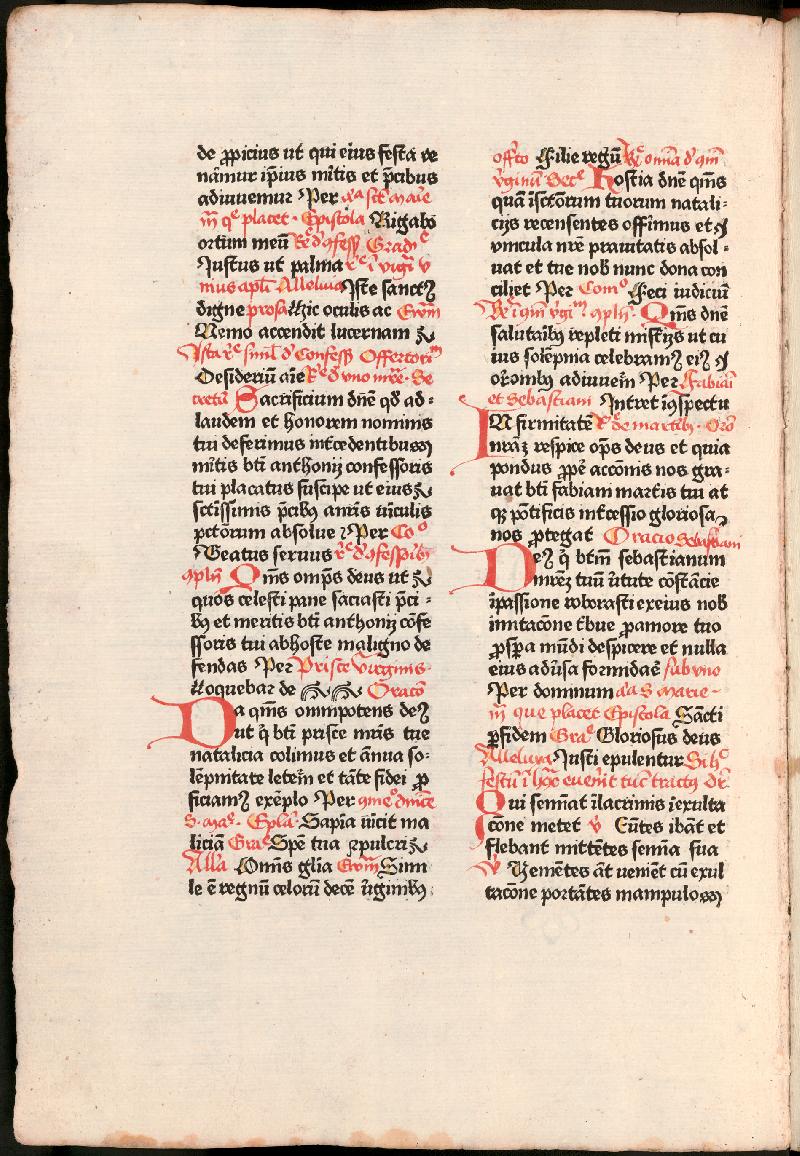 de ꝓpicius ut qui eius festa ve
nãmur ip̃ius mĩtis et p̃cibus
adiuuemur Per Ala sc̃e marie
m̃ q̃ placet · Epistola Rigabo
ortum meũ Re d' ꝯfess Gradᶜ
Justus ut palma rᶜ i vigi v
mus apl̃i Alleluia Iste sanctꝰ
digne prosa Hic oculis ac Ewm̃
Nemo accendit lucernam ⁊c
Ista rᶜ simil d' Confess Offertoriᵐ
Desideriũ aĩe Re d' vno mr̃e · Se
cretũ Sacrificium dñe qd̃ ad-
laudem et honorem nominis
tui deferimus int̃cedentibus
mĩtis bt̃i anthonij confessoris
tui placatus suscipe ut eius ⁊c
sctĩssimis p̃cibus anr̃is uĩculis
pctõrum absolue ⁊ Per Coᵒ
Beatus seruus rᶜ d' ꝯfessoribꝰ
ꝯpleñ Qm̃s omp̃s deus ut ⁊c
quos celesti pane saciasti p̃ci-
bꝰ et meritis bt̃i anthonij cõfe
ssoris tui ab hoste maligno de
fendas Per Prisce Virginis
Loquebar de Oracõ
Da qm̃s omnipotens deꝰ
ut q̃ bt̃i prisce mr̃is tue
natalicia colimus et ãnua so-
lẽpnitate letem̃ et tãte fidei ꝓ
ficiamꝰ exẽplo Per
S · maᵉ · Epl̃a · Sapĩa uĩcit ma
liciã Graᵉ Spẽ tua ⁊ pulcri ⁊c
All'a Om̃s glĩa Ewm̃ Simi
le ẽ regnũ celorũ decẽ ũginibꝰ
offr̃to Filie regũ Reᶜ om̃ia d' qm̃
v̓ginũ Secᵉ Hostia dñe qm̃s
quã ĩ sctõrum tuorum natali-
cijs recensentes offĩmus et ⁊
vincula nr̃e prauitatis absol-
uat et tue nob̃ nunc dona con
ciliet Per Comᵒ Feci iudiciũ
Qm̃s dñe
salutaribꝰ repleti mist̃ijs ut cu
ius solẽpnia celebramꝰ eiꝰ ⁊
orõnibꝰ adiuuem̃ Per Fabiani
et Sebastiani Intret ĩ ꝯspectu
Infirmitatẽ Re de martĩbꝰ · Orõ
nr̃aꝫ respice op̃s deus et quia
pondus ꝓpẽ accõnis nos gra-
uat bt̃i fabiani martĩs tui at
qꝫ põtificis int̃cessio gloriosa
nos ꝓtegat Oracio Sebastiani
Deꝰ q̃ bt̃m sebastianum
mr̃eꝫ tuũ ũtute cõstãcie
ĩ passione roborasti ex eius nob̃
imitacõne t̓bue ꝓ amore tuo
ꝓsp̃a mũdi despicere et nulla
eius adũsa formidaẽ sub vno
Per dominum Ala S Marie -
m̃ que placet Epistola Sãcti
ꝑ fidem Graᵉ Gloriosus deus
Alleluya Iusti epulentur Si hᶜ
festũ ĩ lxxᵃ euen̓it tũc tractꝰ dr̃
Qui semĩat ĩ lacrimis ĩ exulta
cõne metet v̓ Eũtes ibãt et
flebant mittẽtes semĩa sua
v̓ Uenẽtes ãt ueniẽt cũ exul
tacõne portãtes manipulos